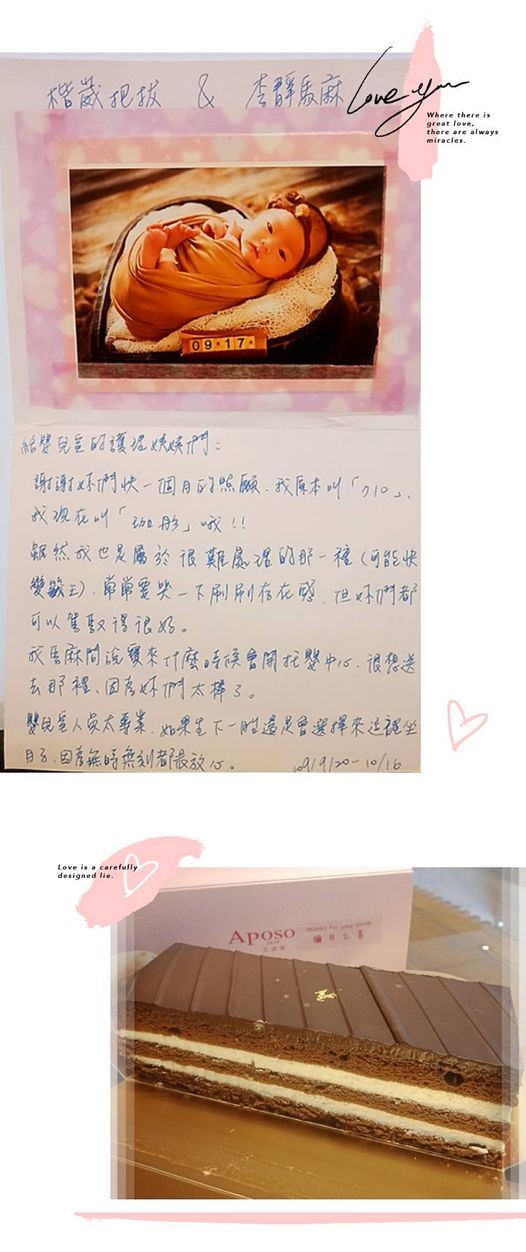 楷崴把拔 & 李靜馬麻
Love you
Where there is
great love,
there are always
miracles.
09 17
給嬰兒室的護理姨姨們:
謝謝妳們快一個月的照顧,我原本叫「710」、
我現在叫「珈彤」哦!!
雖然我也是屬於很難處理的那一種(可能快
變龜王),常常要哭一下刷刷存在感,但妳們都
可以駕馭得很好。
我馬麻問說寶來什麼時候會開托嬰中心,很想送
去那裡,因為妳們太棒了。
嬰兒室人員太專業,如果生下一胎還是會選擇來這裡坐
月子,因為無時無刻都很放心。
109/9/20-10/16
Love is a carefully
designed lie.
Aposo
thanks for your
彌月之喜